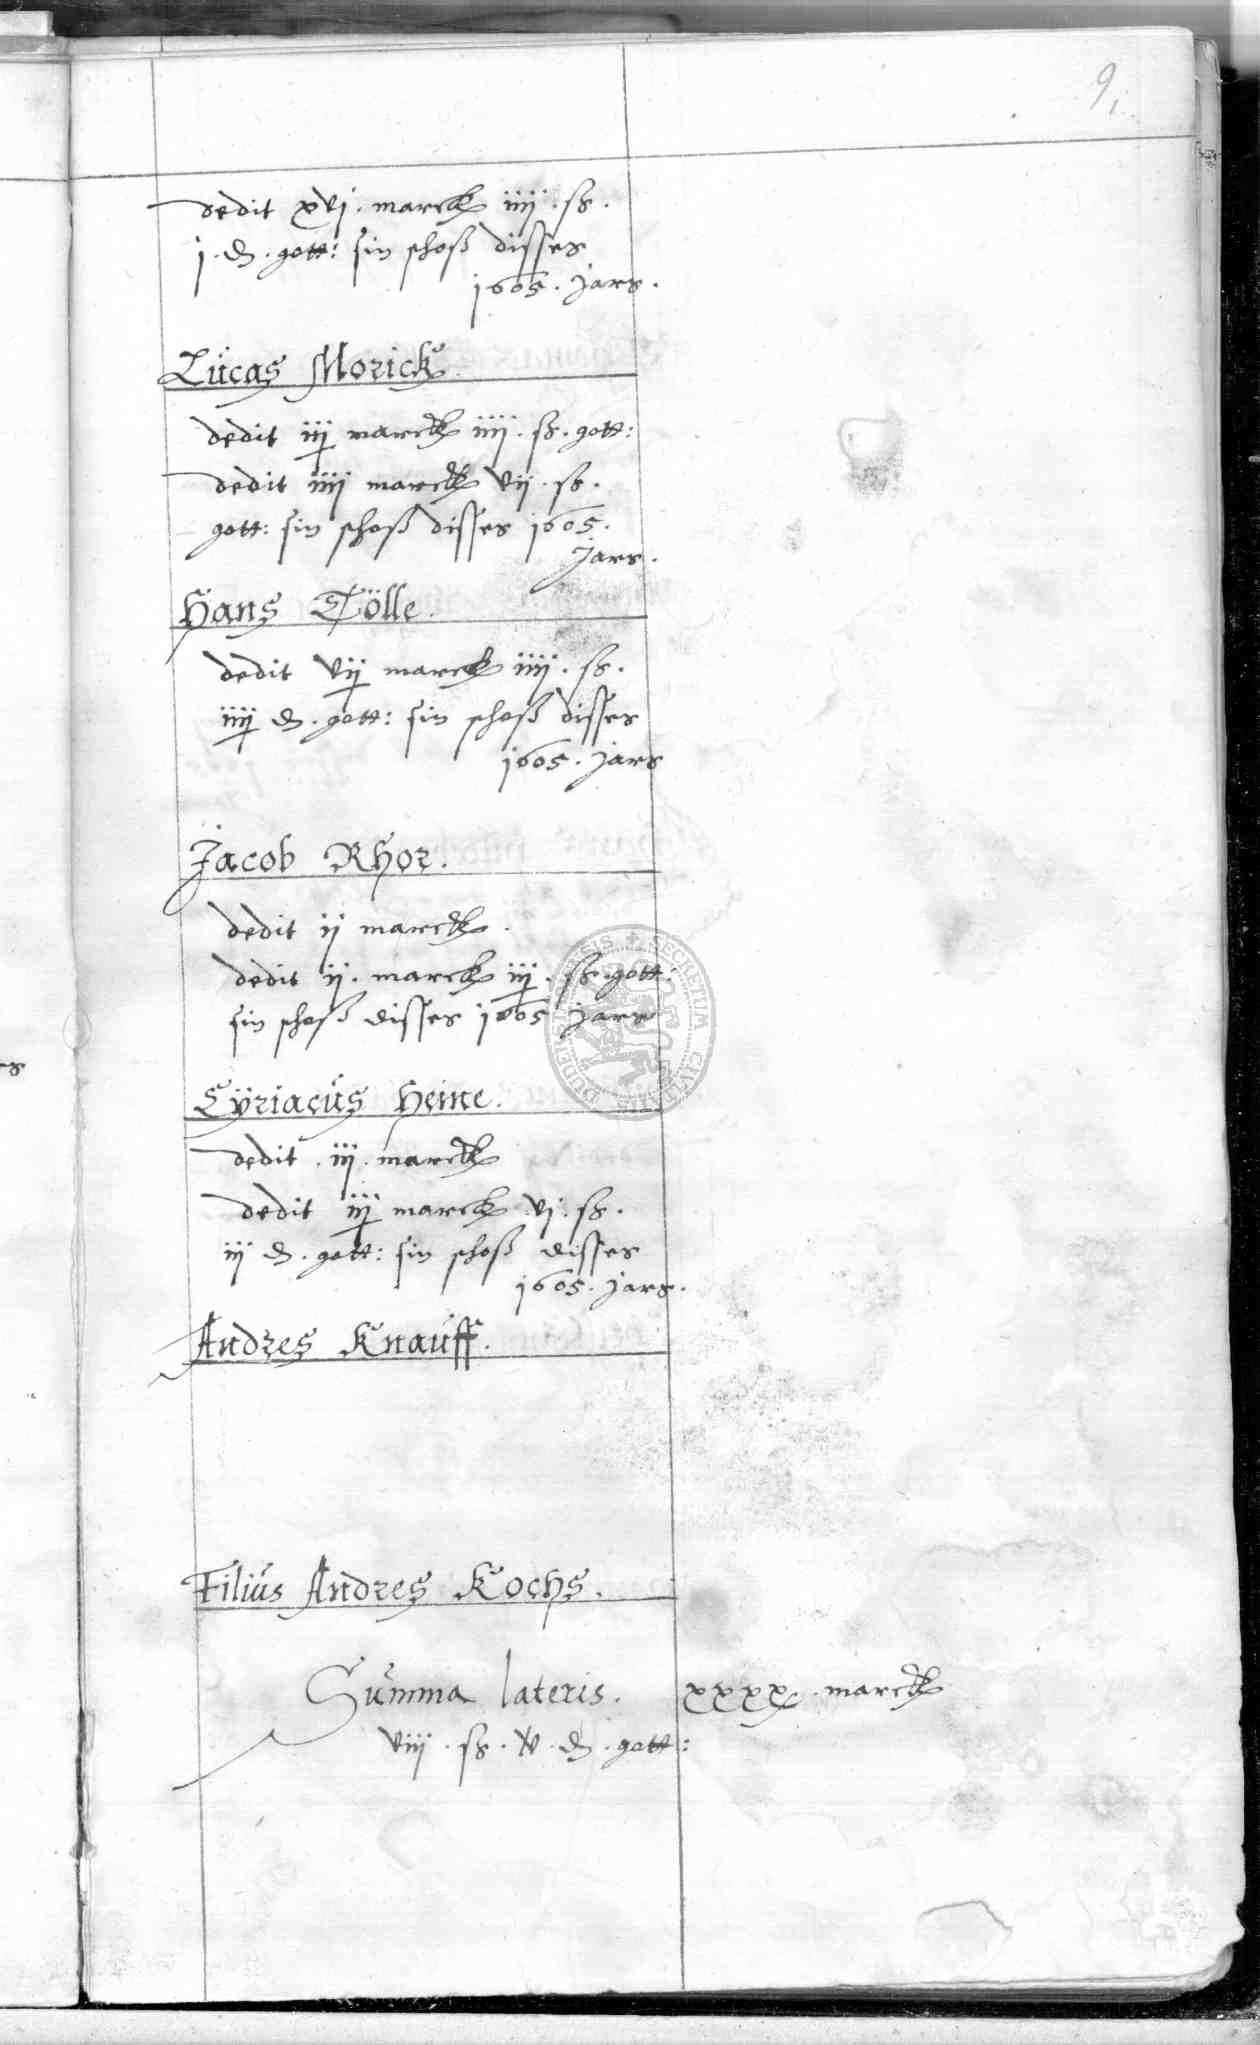 9.
dedit xvj. marck iiij. ß.
j. d. gott: sin schoß disses
1605. jars.
Lucas Morick.
dedit iij marck iiij. ß. gott:
dedit iiij marck vij. ß.
gott: sin schoß disses 1605.
jars.
Hans Tölle.
dedit vij marck iiij. ß.
iiij d. gott: sin schoß disses
1605. jars
Jacob Rhor.
dedit ij marck.
dedit ij. marck iij. ß. gott:
sin schoß disses 1605 jars
Cÿriacus Heine.
dedit. iij. marck
dedit iij marck vj. ß.
iij d. gott: sin schoß disses
1605. jars.
Andres Knauff.
Filius Andres Kochs.
Summa lateris. xxxx. marck
viij. ß. v. d. gott:
SECRETUM CIVITATIS DUDERSTADENSIS